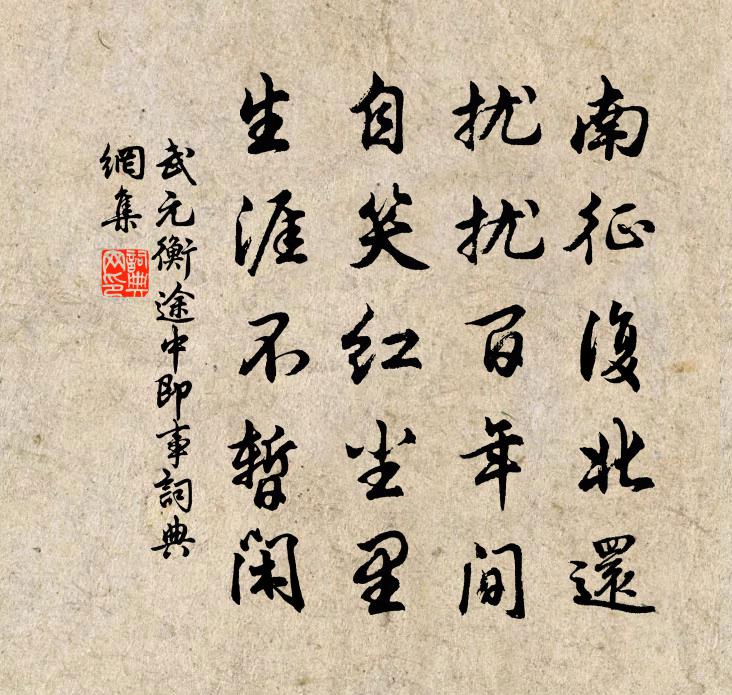 南征復北還
扰扰百年间
自笑红尘里
生涯不暫闲
武元衡途中即事詞典
網集
詞典
网印